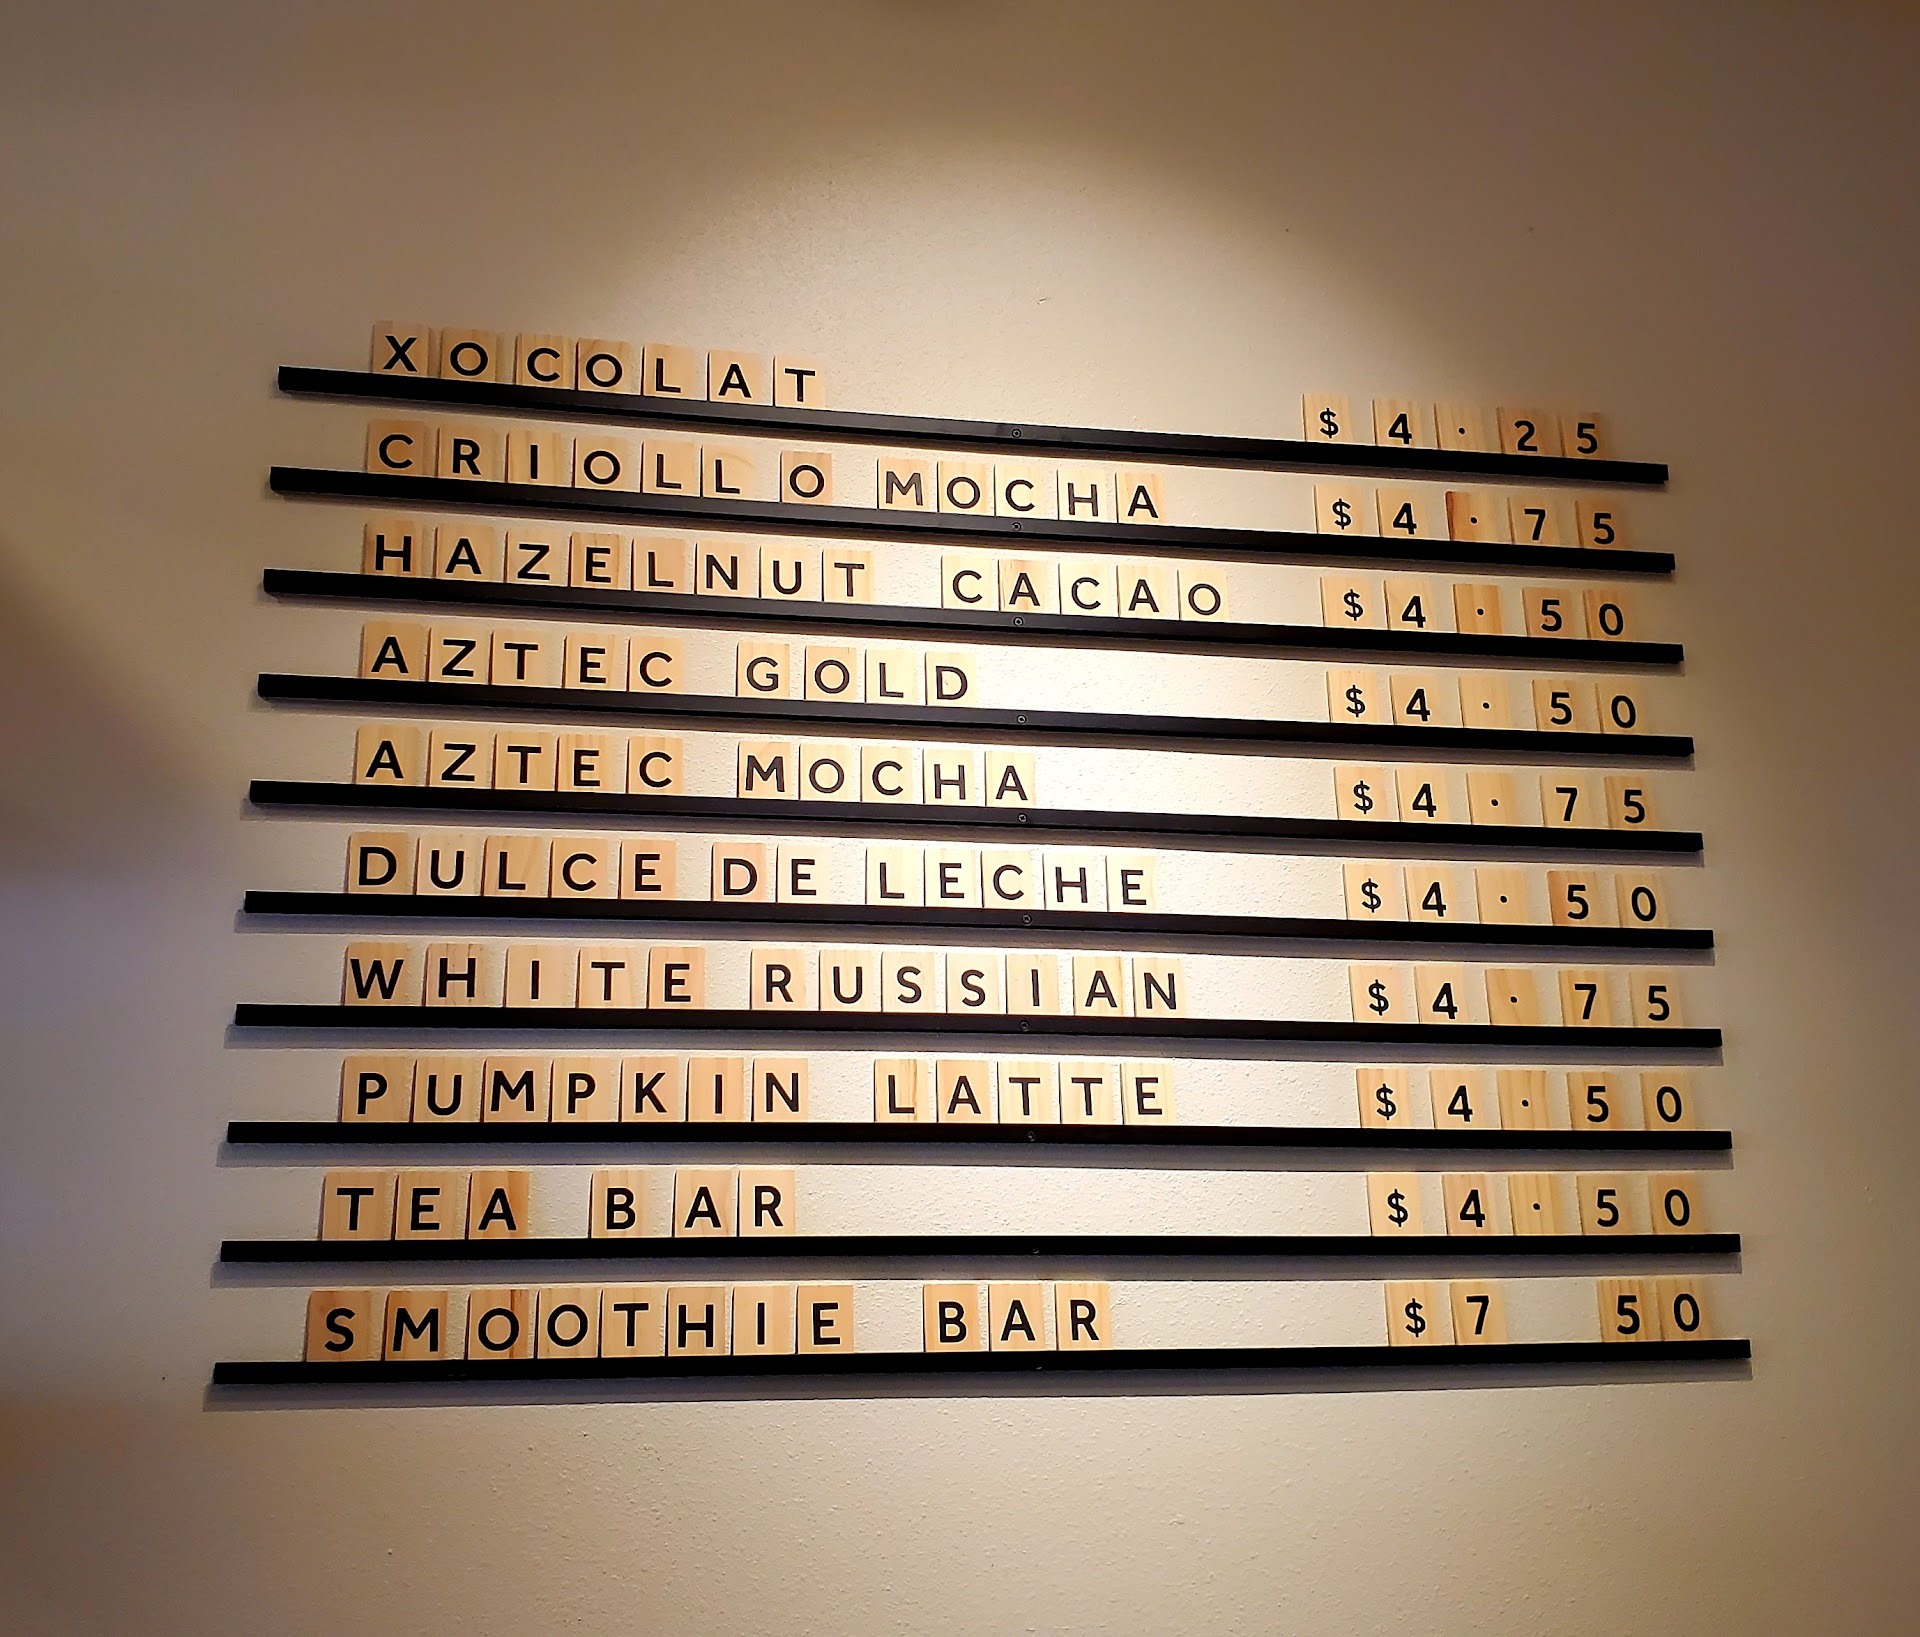 XOCOLAT $4.25
CRIOLLO MOCHA $4.75
HAZELNUT CACAO $4.50
AZTEC GOLD $4.50
AZTEC MOCHA $4.75
DULCE DE LECHE $4.50
WHITE RUSSIAN $4.75
PUMPKIN LATTE $4.50
TEA BAR $4.50
SMOOTHIE BAR $7 50